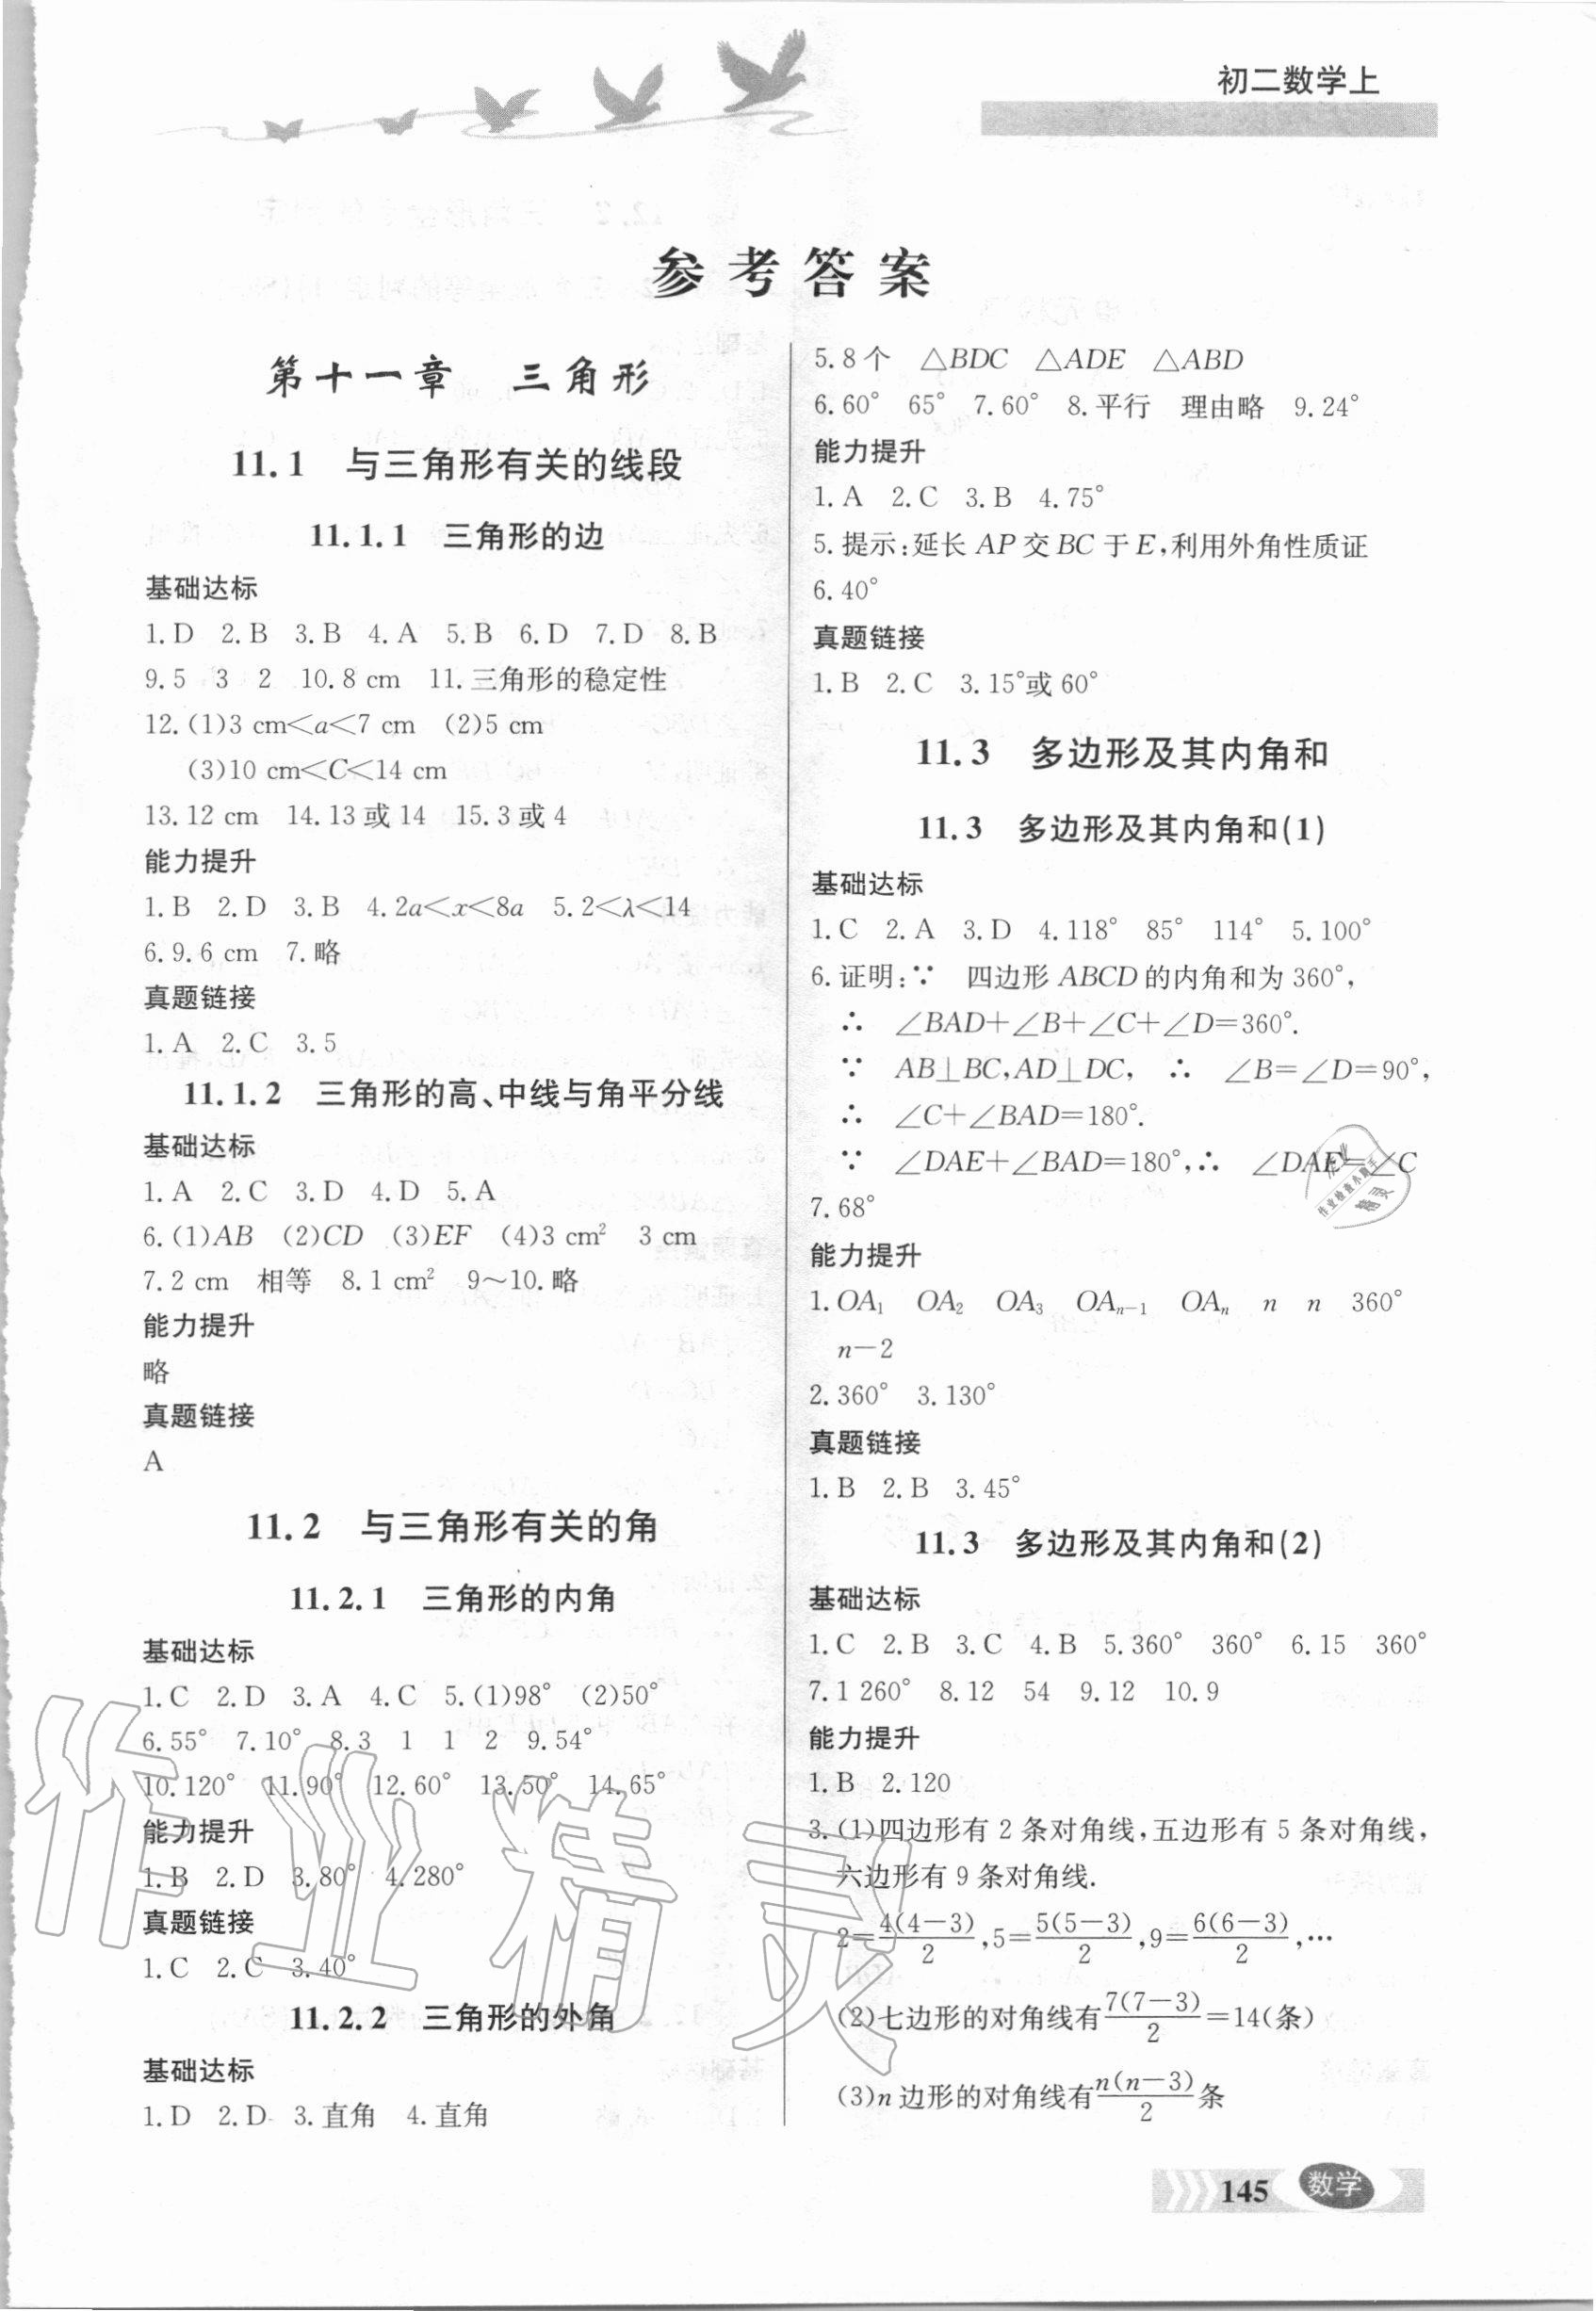 初二数学上
参考答案
第十一章 三角形
11.1 与三角形有关的线段
11.1.1 三角形的边
基础达标
1.D 2.B 3.B 4.A 5.B 6.D 7.D 8.B
9.5 3 2 10.8 cm 11.三角形的稳定性
12.(1)3 cm<a<7 cm (2)5 cm
(3)10 cm<C<14 cm
13.12 cm 14.13或14 15.3或4
能力提升
1.B 2.D 3.B 4.2a<x<8a 5.2<λ<14
6.9.6 cm 7.略
真题链接
1.A 2.C 3.5
11.1.2 三角形的高、中线与角平分线
基础达标
1.A 2.C 3.D 4.D 5.A
6.(1)AB (2)CD (3)EF (4)3 cm² 3 cm
7.2 cm 相等 8.1 cm² 9～10.略
能力提升
略
真题链接
A
11.2 与三角形有关的角
11.2.1 三角形的内角
基础达标
1.C 2.D 3.A 4.C 5.(1)98° (2)50°
6.55° 7.10° 8.3 1 1 2 9.54°
10.120° 11.90° 12.60° 13.50° 14.65°
能力提升
1.B 2.D 3.80° 4.280°
真题链接
1.C 2.C 3.40°
11.2.2 三角形的外角
基础达标
1.D 2.D 3.直角 4.直角
5.8个 △BDC △ADE △ABD
6.60° 65° 7.60° 8.平行 理由略 9.24°
能力提升
1.A 2.C 3.B 4.75°
5.提示:延长AP交BC于E,利用外角性质证
6.40°
真题链接
1.B 2.C 3.15°或60°
11.3 多边形及其内角和
11.3 多边形及其内角和(1)
基础达标
1.C 2.A 3.D 4.118° 85° 114° 5.100°
6.证明:∵ 四边形ABCD的内角和为360°,
∴ ∠BAD+∠B+∠C+∠D=360°.
∵ AB⊥BC,AD⊥DC, ∴ ∠B=∠D=90°,
∴ ∠C+∠BAD=180°.
∵ ∠DAE+∠BAD=180°,∴ ∠DAE=∠C
7.68°
能力提升
1.OA₁ OA₂ OA₃ OAₙ₋₁ OAₙ n n 360°
n-2
2.360° 3.130°
真题链接
1.B 2.B 3.45°
11.3 多边形及其内角和(2)
基础达标
1.C 2.B 3.C 4.B 5.360° 360° 6.15 360°
7.1 260° 8.12 54 9.12 10.9
能力提升
1.B 2.120
3.(1)四边形有2条对角线,五边形有5条对角线,
六边形有9条对角线.
2=4(4-3)/2,5=5(5-3)/2,9=6(6-3)/2,…
(2)七边形的对角线有7(7-3)/2=14(条)
(3)n边形的对角线有n(n-3)/2条
145 数学
作业精灵
作业检查小助手
精灵